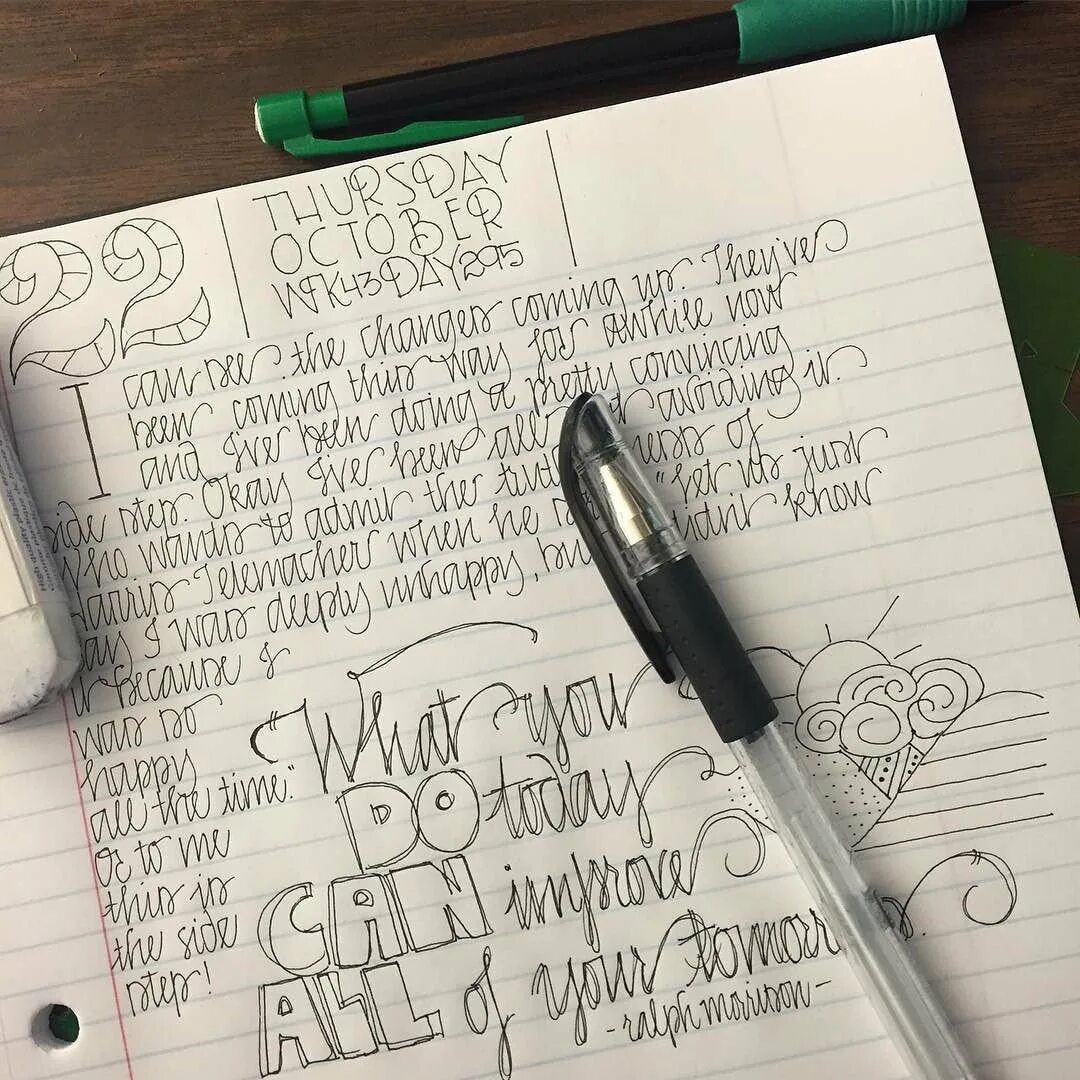 22
THURSDAY
OCTOBER
WEEK 43 DAY 295
I can see the changes coming up. They've
been coming this way for awhile now
and I've been doing a pretty convincing
side step. Okay I've been all avoiding it.
Who wants to admit the of
Harry Telemacher when he "Yet it's just
say I was deeply unhappy, but I didn't know
it because I
was so
happy
all the time."
Or to me
this is
the side
step!
"What you
DO today
CAN improve
ALL of your tomorrows.
-ralph morrison-
High quality